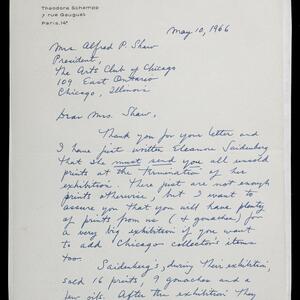 Theodore Schempp
7 rue Gauguet
Paris. 14e
May 10, 1966
Mrs Alfred P. Shaw
President,
The Arts Club of Chicago
109 East Ontario
Chicago, Illinois
Dear Mrs. Shaw,
Thank you for your letter and
I have just written Eleanore Saidenberg
that she must send you all unsold
prints at the termination of her
exhibition. There just are not enough
prints otherwise, but I want to
assure you that you will have plenty
of prints from me (& gouaches) for
a very big exhibition if you want
to add Chicago collector's items
too.
Saidenberg's, during their exhibition,
sold 16 prints, 9 gouaches and a
few oils. After the exhibition they